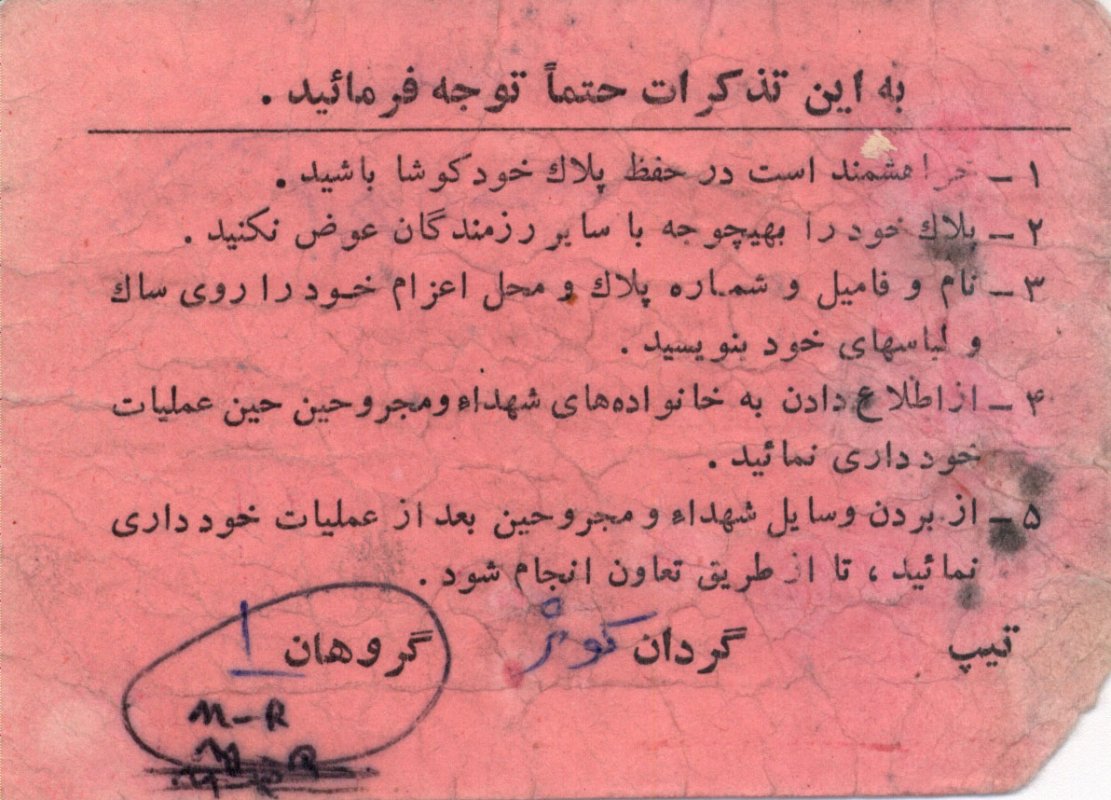 به این تذکرات حتماً توجه فرمائید .
۱ ـ خواهشمند است در حفظ پلاك خود کوشا باشید .
۲ ـ پلاك خود را بهیچوجه با سایر رزمندگان عوض نکنید .
۳ ـ نام و فامیل و شماره پلاك و محل اعزام خود را روی ساك
و لباسهای خود بنویسید .
۴ ـ از اطلاع دادن به خانواده‌های شهداء ومجروحین حین عملیات
خودداری نمائید .
۵ ـ از بردن وسایل شهداء و مجروحین بعد از عملیات خودداری
نمائید ، تا از طریق تعاون انجام شود .
تیپ گردان کوثر گروهان ۱
M-R